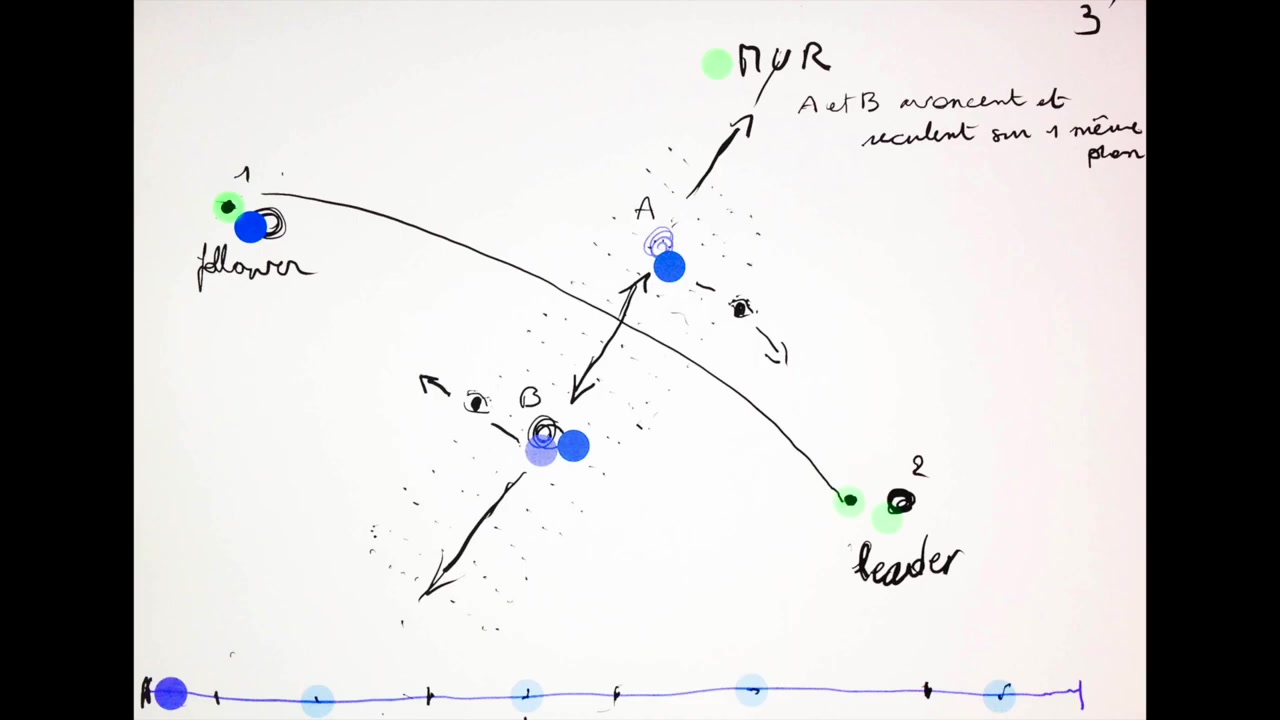 3'
MUR
A et B avancent et
reculent sur 1 même
plan
1
A
follower
B
2
leader